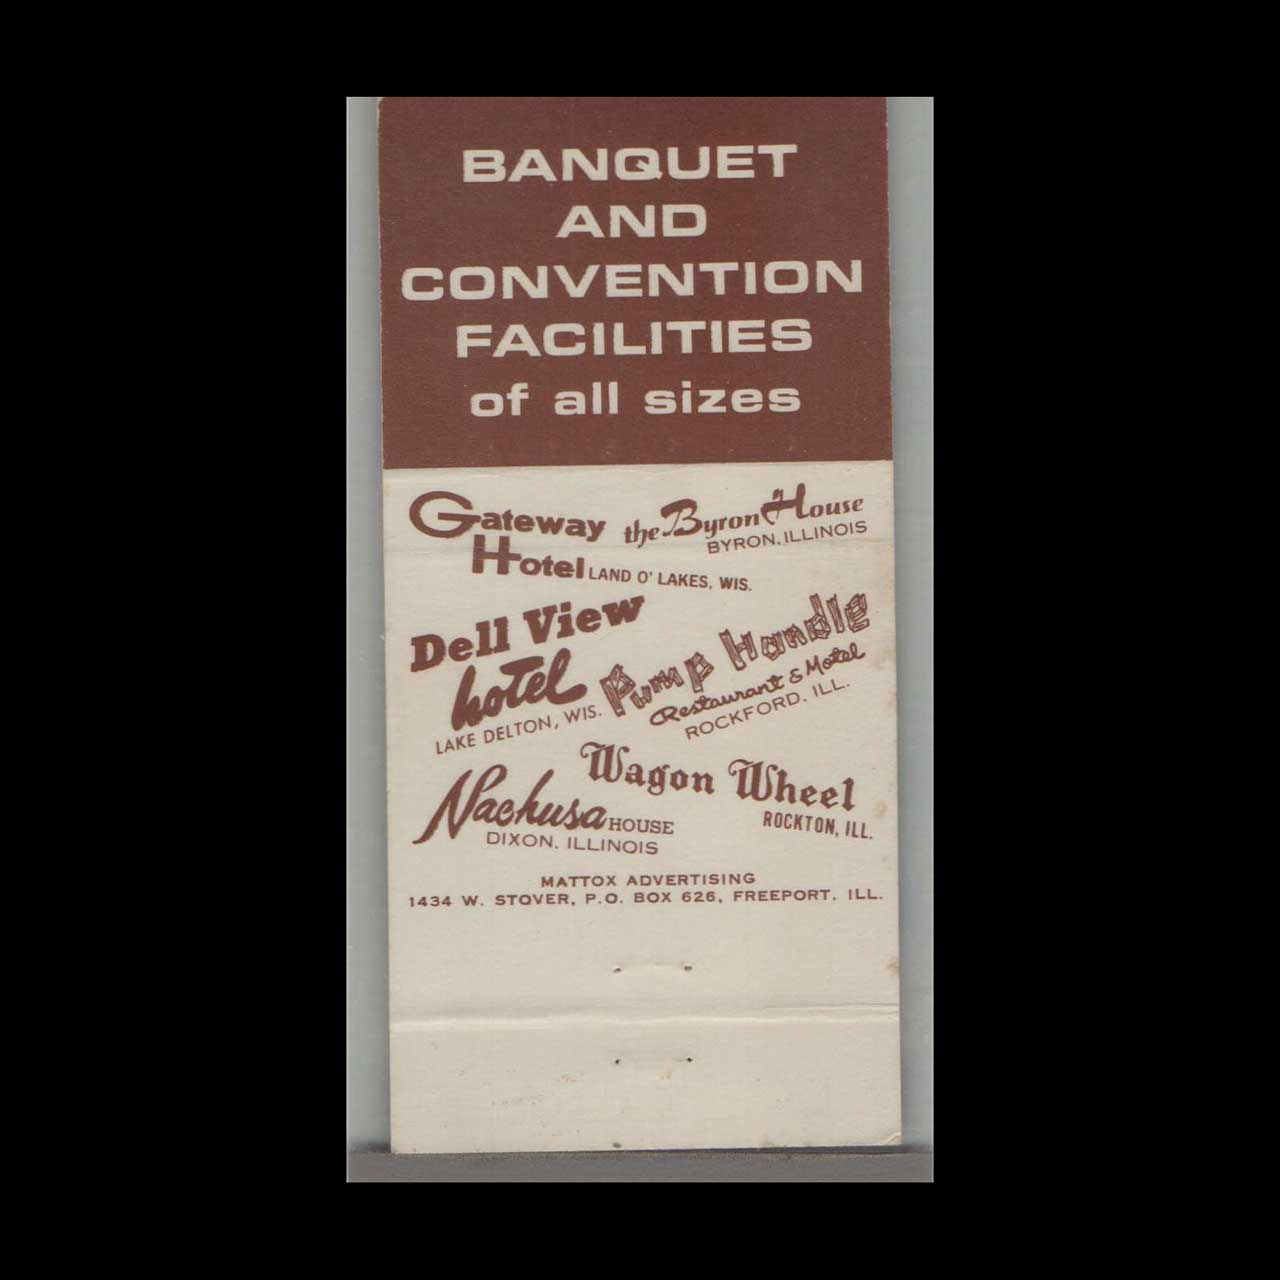 BANQUET
AND
CONVENTION
FACILITIES
of all sizes
Gateway
Hotel LAND O' LAKES, WIS.
the Byron House
BYRON, ILLINOIS
Dell View
hotel
LAKE DELTON, WIS.
Pump Handle
Restaurant & Motel
ROCKFORD, ILL.
Wagon Wheel
ROCKTON, ILL.
Nachusa HOUSE
DIXON, ILLINOIS
MATTOX ADVERTISING
1434 W. STOVER, P.O. BOX 626, FREEPORT, ILL.